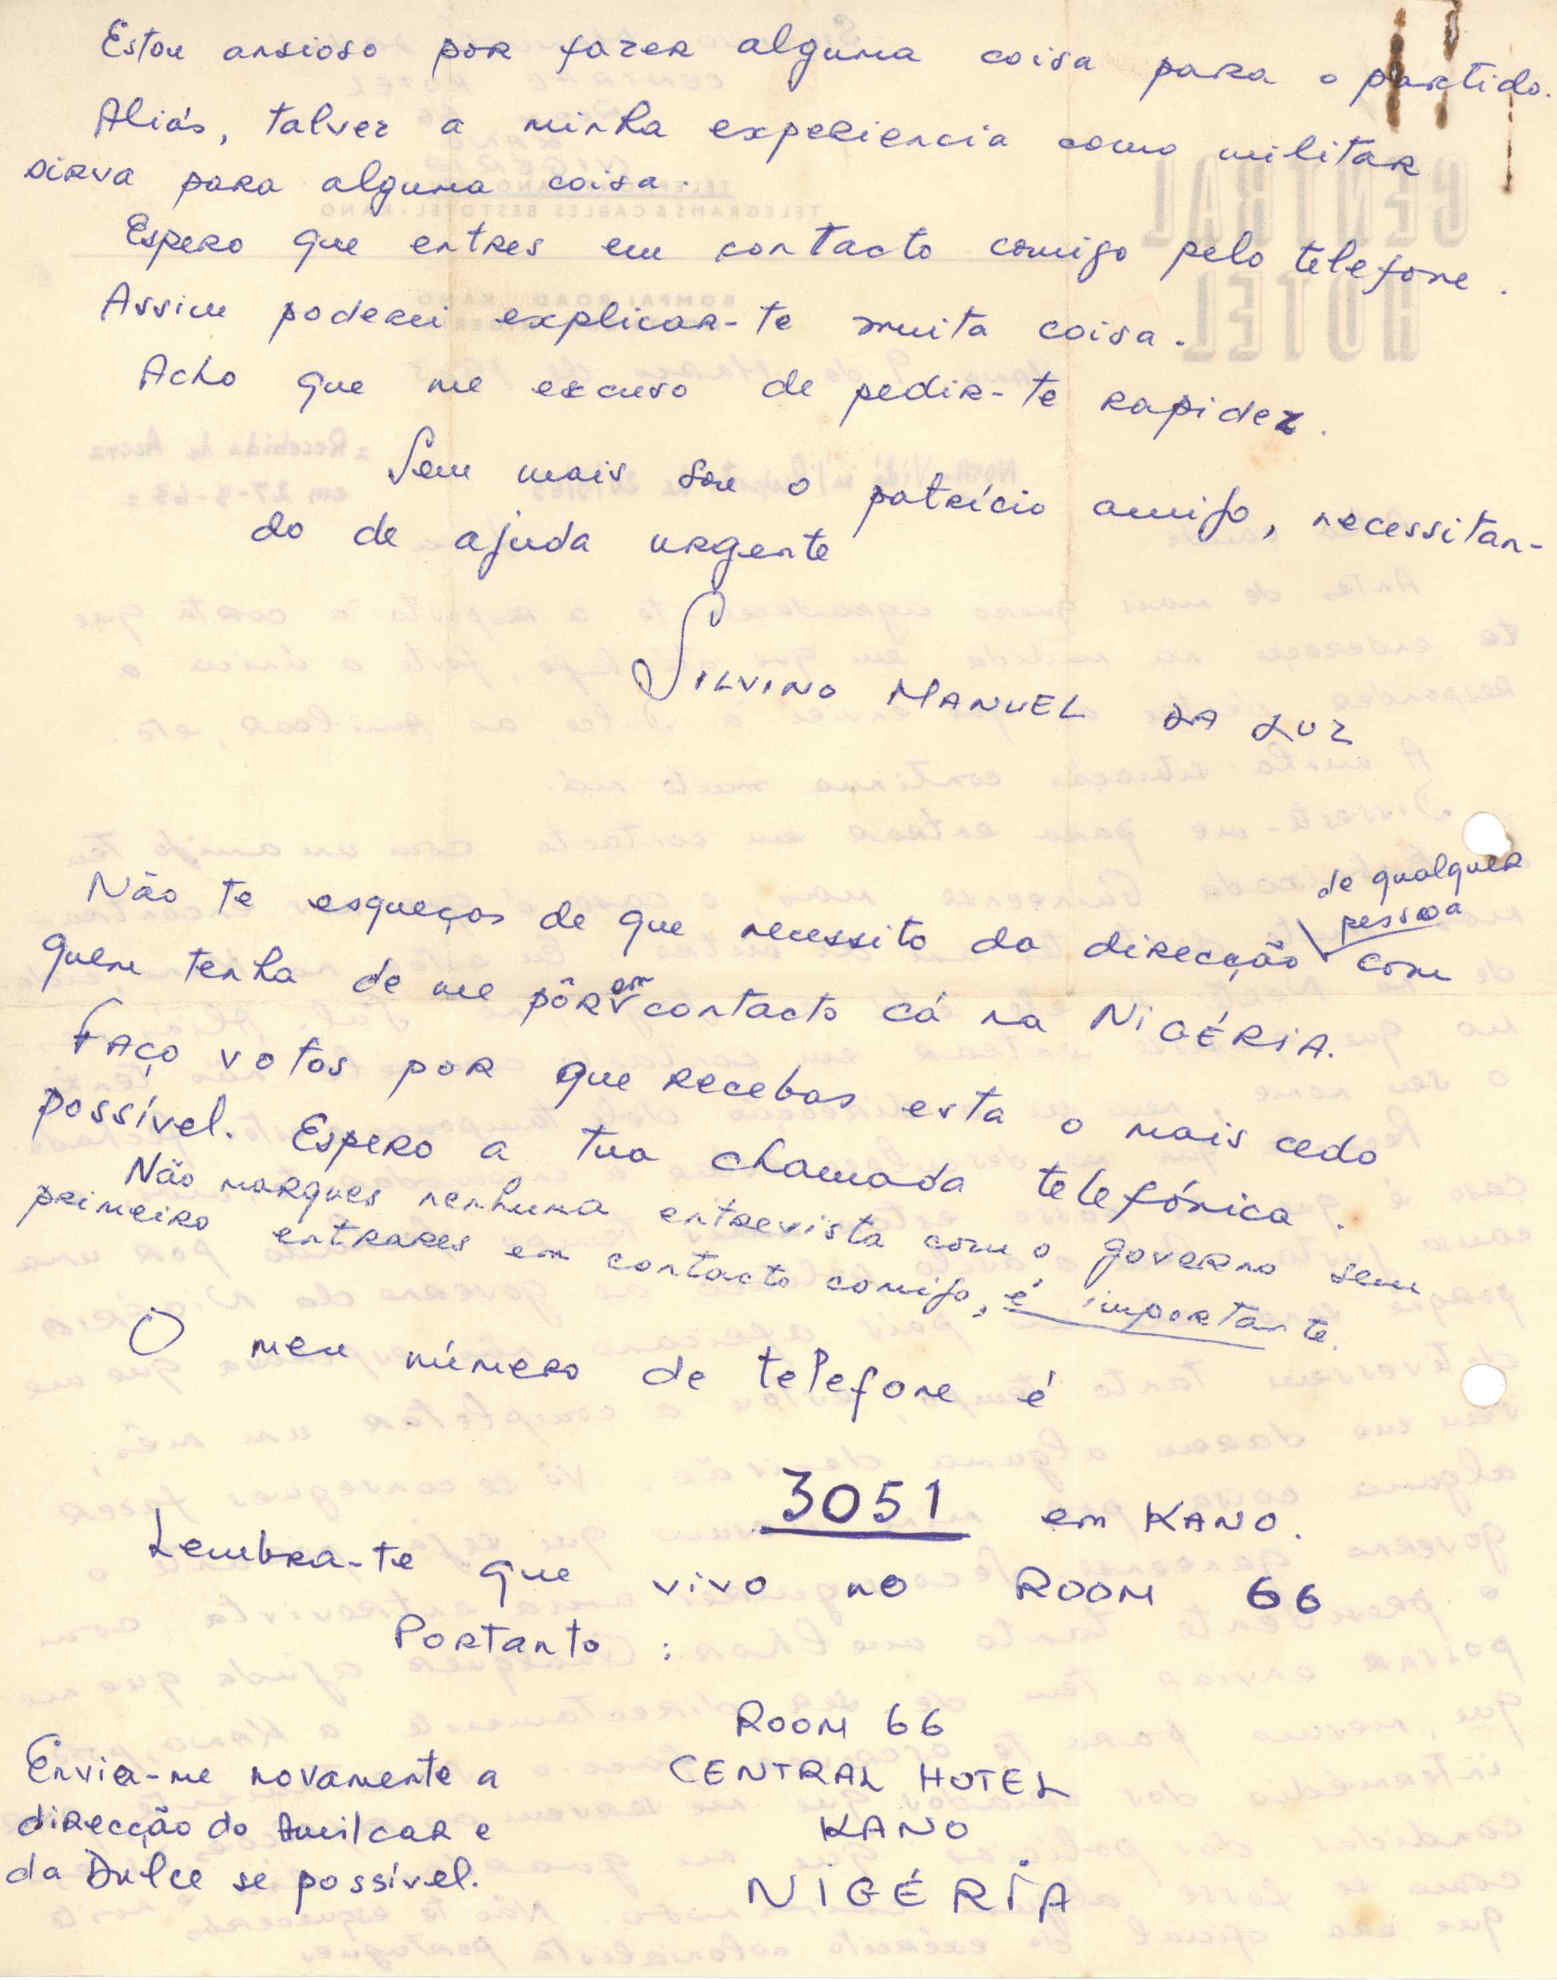 Estou ansioso por fazer alguma coisa para o partido.
Aliás, talvez a minha experiencia como militar
sirva para alguma coisa.
Espero que entres em contacto comigo pelo telefone.
Assim poderei explicar-te muita coisa.
Acho que me escuso de pedir-te rapidez.
Sem mais sou o patrício amigo, necessitan-
do de ajuda urgente
SILVINO MANUEL DA LUZ
Não te esqueças de que necessito da direcção de qualquer pessoa com
quem tenha de me pôr em contacto cá na NIGÉRIA.
Faço votos por que recebas esta o mais cedo
possível. Espero a tua chamada telefónica.
Não marques nenhuma entrevista com o governo sem
primeiro entrares em contacto comigo, é importante.
O meu número de telefone é
3051 em KANO.
Lembra-te que vivo no ROOM 66
Portanto:
ROOM 66
CENTRAL HOTEL
KANO
NIGÉRIA
Envia-me novamente a
direcção do Amilcar e
da Dulce se possível.